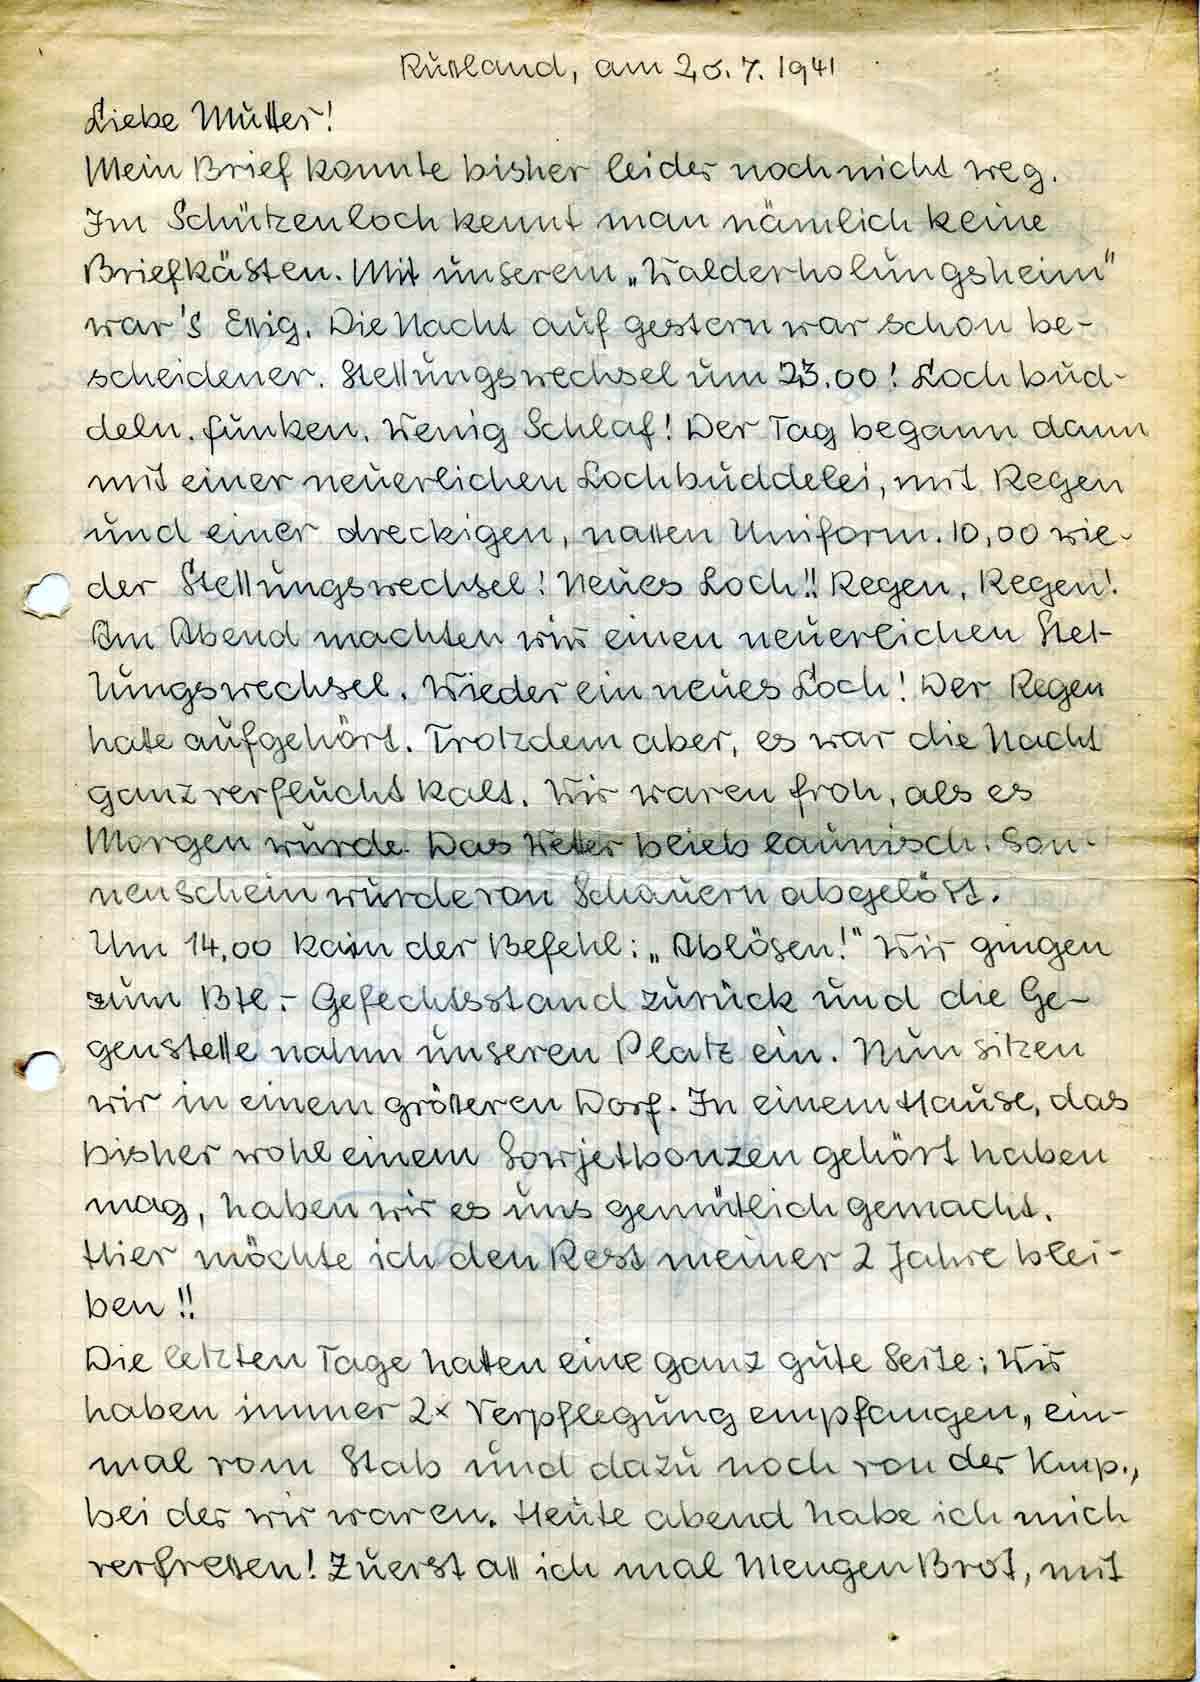 Rußland, am 20.7.1941
Liebe Mutter!
Mein Brief konnte bisher leider noch nicht weg.
Im Schützenloch kennt man nämlich keine
Briefkästen. Mit unserem „Walderholungsheim"
war's Essig. Die Nacht auf gestern war schon be-
scheidener. Stellungswechsel um 23.00! Loch bud-
deln. funken. Wenig Schlaf! Der Tag begann dann
mit einer neuerlichen Lochbuddelei, mit Regen
und einer dreckigen, nassen Uniform. 10,00 wie-
der Stellungswechsel! Neues Loch!! Regen, Regen!
Am Abend machten wir einen neuerlichen Stel-
lungswechsel. Wieder ein neues Loch! Der Regen
hatte aufgehört. Trotzdem aber, es war die Nacht
ganz verflucht kalt. Wir waren froh, als es
Morgen wurde. Das Wetter blieb launisch. Son-
nenschein wurde von Schauern abgelöst.
Um 14,00 kam der Befehl: „Ablösen!" Wir gingen
zum Btl.- Gefechtsstand zurück und die Ge-
genstelle nahm unseren Platz ein. Nun sitzen
wir in einem größeren Dorf. In einem Hause, das
bisher wohl einem Sowjetbonzen gehört haben
mag, haben wir es uns gemütlich gemacht.
Hier möchte ich den Rest meiner 2 Jahre blei-
ben!!
Die letzten Tage hatten eine ganz gute Seite: Wir
haben immer 2x Verpflegung empfangen, ein-
mal vom Stab und dazu noch von der Kmp.,
bei der wir waren. Heute abend habe ich mich
verfressen! Zuerst aß ich mal Mengen Brot, mit